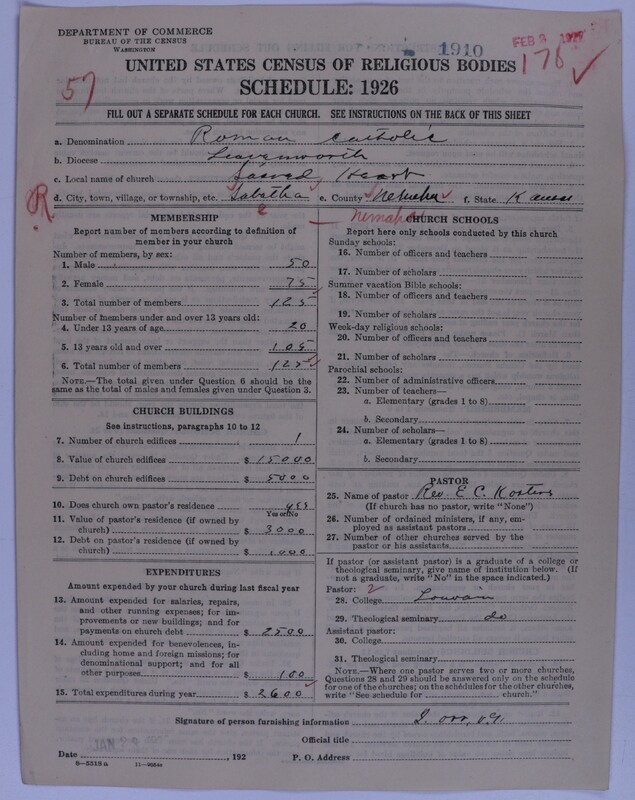 DEPARTMENT OF COMMERCE
BUREAU OF THE CENSUS
WASHINGTON
1910
FEB 3
176
57
UNITED STATES CENSUS OF RELIGIOUS BODIES
SCHEDULE: 1926
FILL OUT A SEPARATE SCHEDULE FOR EACH CHURCH. SEE INSTRUCTIONS ON THE BACK OF THIS SHEET
a. Denomination Roman Catholic
b. Diocese Leavenworth
c. Local name of church Sacred Heart
d. City, town, village, or township, etc. Sabetha e. County Nemaha f. State Kansas
Nemaha
MEMBERSHIP
Report number of members according to definition of
member in your church
Number of members, by sex:
1. Male 50
2. Female 75
3. Total number of members 125
Number of members under and over 13 years old:
4. Under 13 years of age 20
5. 13 years old and over 105
6. Total number of members 125
NOTE.—The total given under Question 6 should be the
same as the total of males and females given under Question 3.
CHURCH BUILDINGS
See instructions, paragraphs 10 to 12
7. Number of church edifices 1
8. Value of church edifices $ 15000
9. Debt on church edifices $ 5000
10. Does church own pastor's residence yes
Yes or No
11. Value of pastor's residence (if owned by
church) $ 3000
12. Debt on pastor's residence (if owned by
church) $
EXPENDITURES
Amount expended by your church during last fiscal year
13. Amount expended for salaries, repairs,
and other running expenses; for im-
provements or new buildings; and for
payments on church debt $ 2500
14. Amount expended for benevolences, in-
cluding home and foreign missions; for
denominational support; and for all
other purposes $ 100
15. Total expenditures during year $ 2600
CHURCH SCHOOLS
Report here only schools conducted by this church
Sunday schools:
16. Number of officers and teachers
17. Number of scholars
Summer vacation Bible schools:
18. Number of officers and teachers
19. Number of scholars
Week-day religious schools:
20. Number of officers and teachers
21. Number of scholars
Parochial schools:
22. Number of administrative officers
23. Number of teachers—
a. Elementary (grades 1 to 8)
b. Secondary
24. Number of scholars—
a. Elementary (grades 1 to 8)
b. Secondary
PASTOR
25. Name of pastor Rev. E C.
(If church has no pastor, write "None")
26. Number of ordained ministers, if any, em-
ployed as assistant pastors
27. Number of other churches served by the
pastor or his assistants
If pastor (or assistant pastor) is a graduate of a college or
theological seminary, give name of institution below. (If
not a graduate, write "No" in the space indicated.)
Pastor: 2
28. College Louvain
29. Theological seminary do
Assistant pastor:
30. College
31. Theological seminary
NOTE.—Where one pastor serves two or more churches,
Questions 28 and 29 should be answered only on the schedule
for one of the churches; on the schedules for the other churches,
write "See schedule for church."
Signature of person furnishing information
Official title
Date JAN 29, 192 P. O. Address
8—5318a 11—9264c